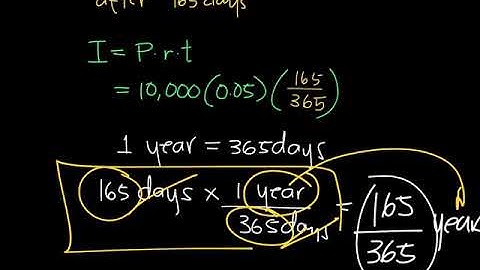 after 165 days
I = P.r.t
= 10,000 (0.05) (165/365)
1 year = 365 days
165 days x 1 year/365 days = (165/365) year